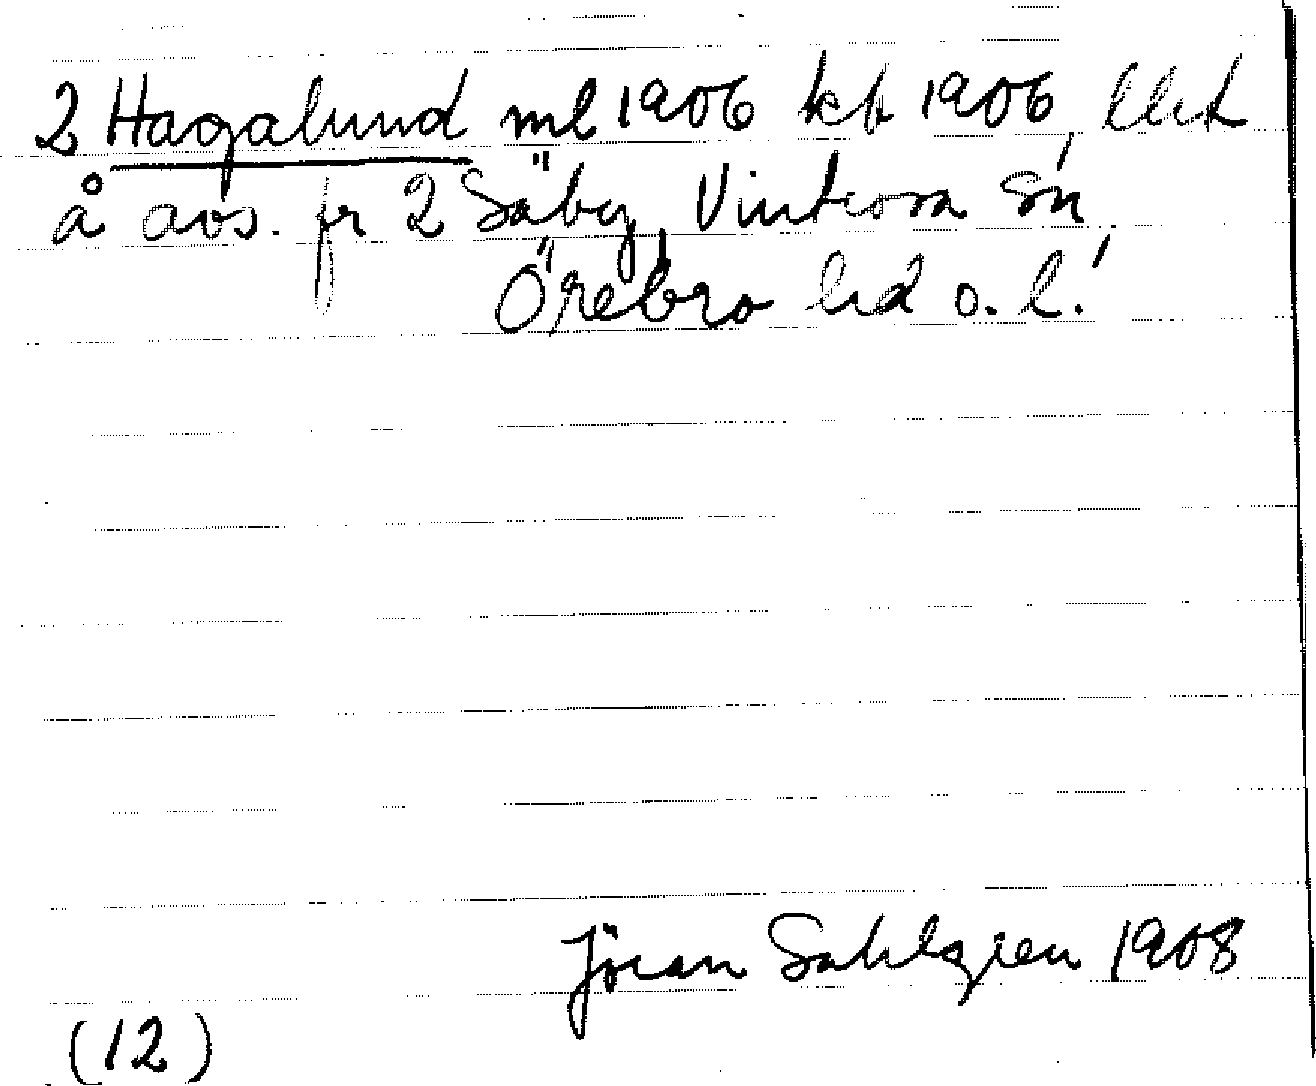 2 Hagalund ml 1906 kb 1906,
å avs. fr 2 Säby, Vintrosa sn,
Örebro hd o. l.
Jöran Sahlgren 1908
(12)